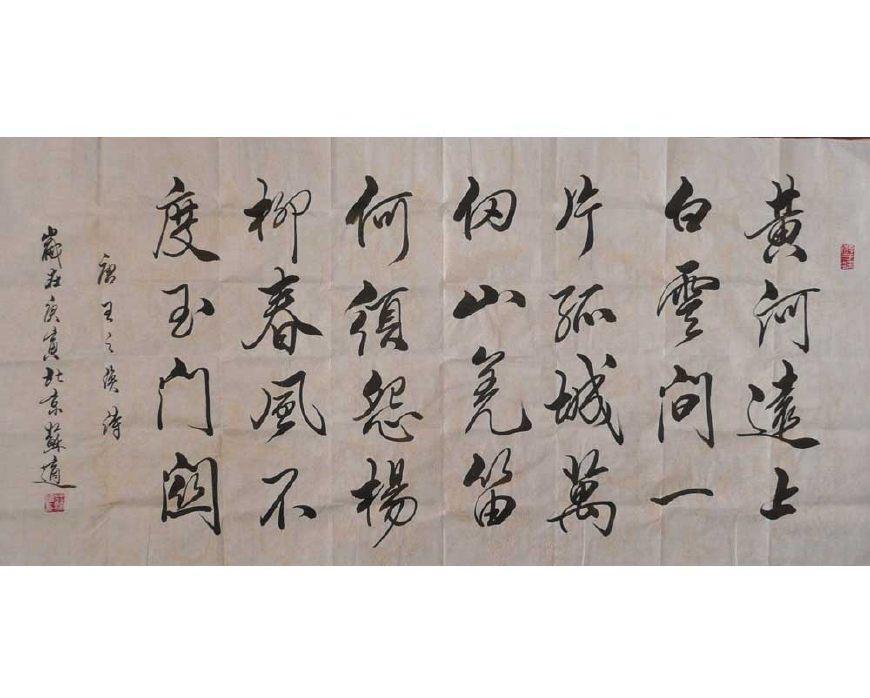 黃河遠上
白雲間一
片孤城萬
仞山羌笛
何須怨楊
柳春風不
度玉門關
唐王之渙詩
歲在庚寅北京蘇適